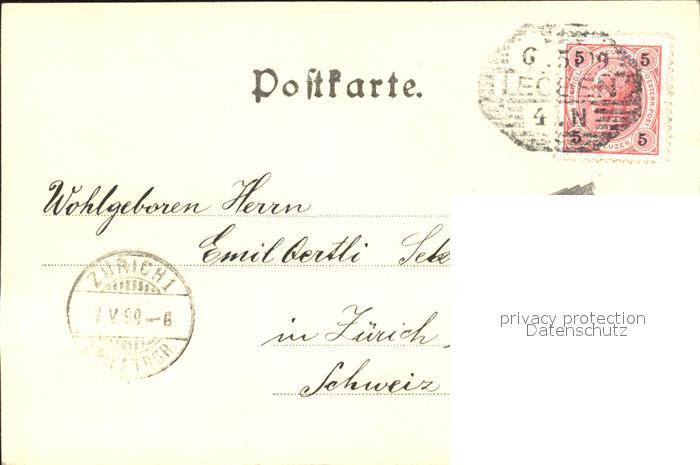 Postkarte.
6 5 99
4 N
5 5
5 5
Wohlgeboren Herrn
Emil Oertli
in Zürich
Schweiz
ZÜRICH 1
7 V 99-6
privacy protection
Datenschutz